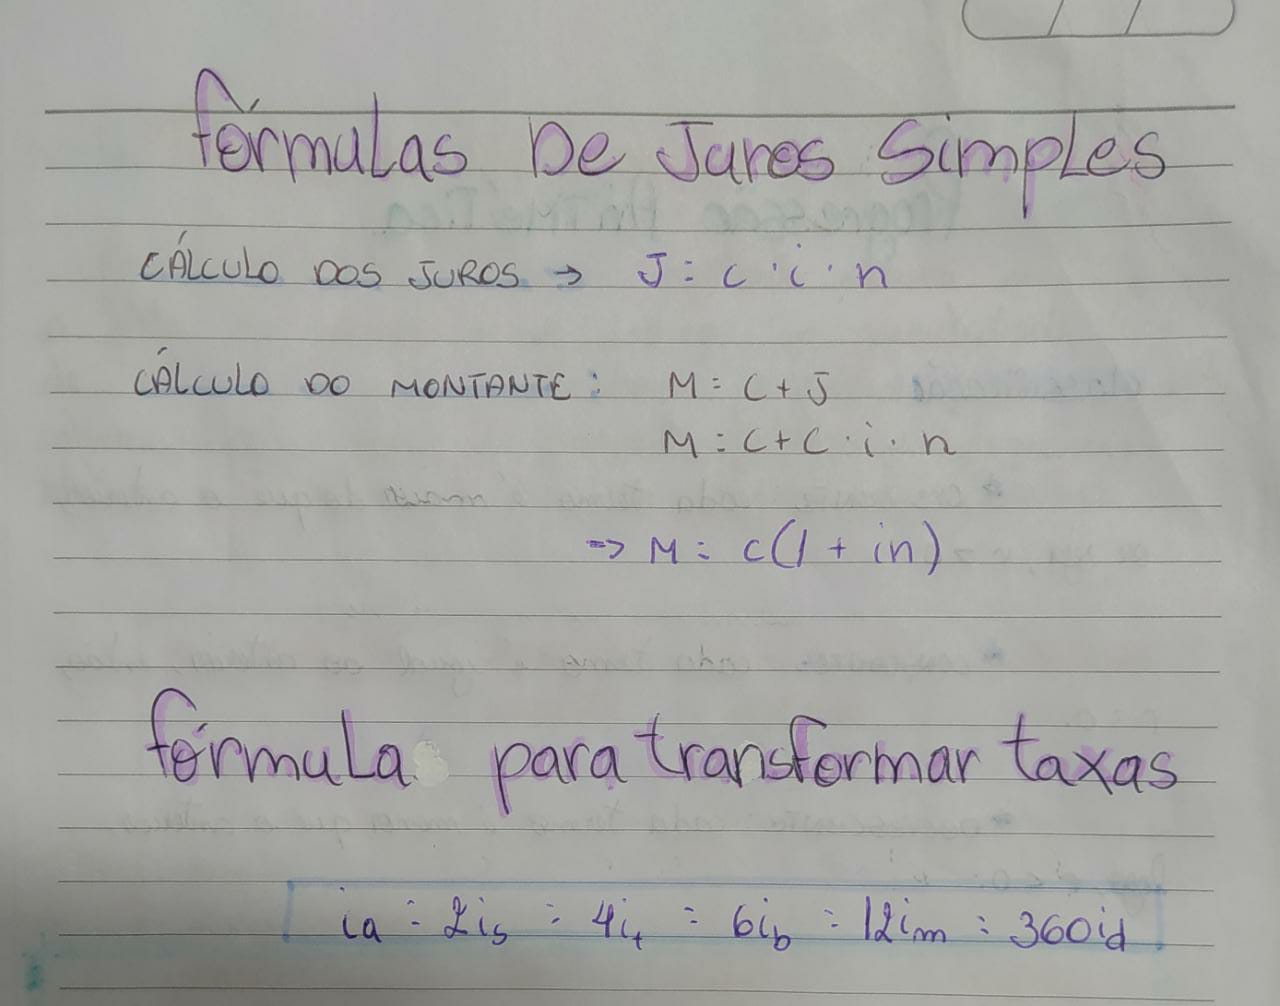 fórmulas De Juros Simples
CÁLCULO DOS JUROS → J = c · i · n
CÁLCULO DO MONTANTE: M = C + J
M = C + C · i · n
⇒ M = c(1 + in)
fórmula para transformar taxas
ia = 2is = 4it = 6ib = 12im = 360id